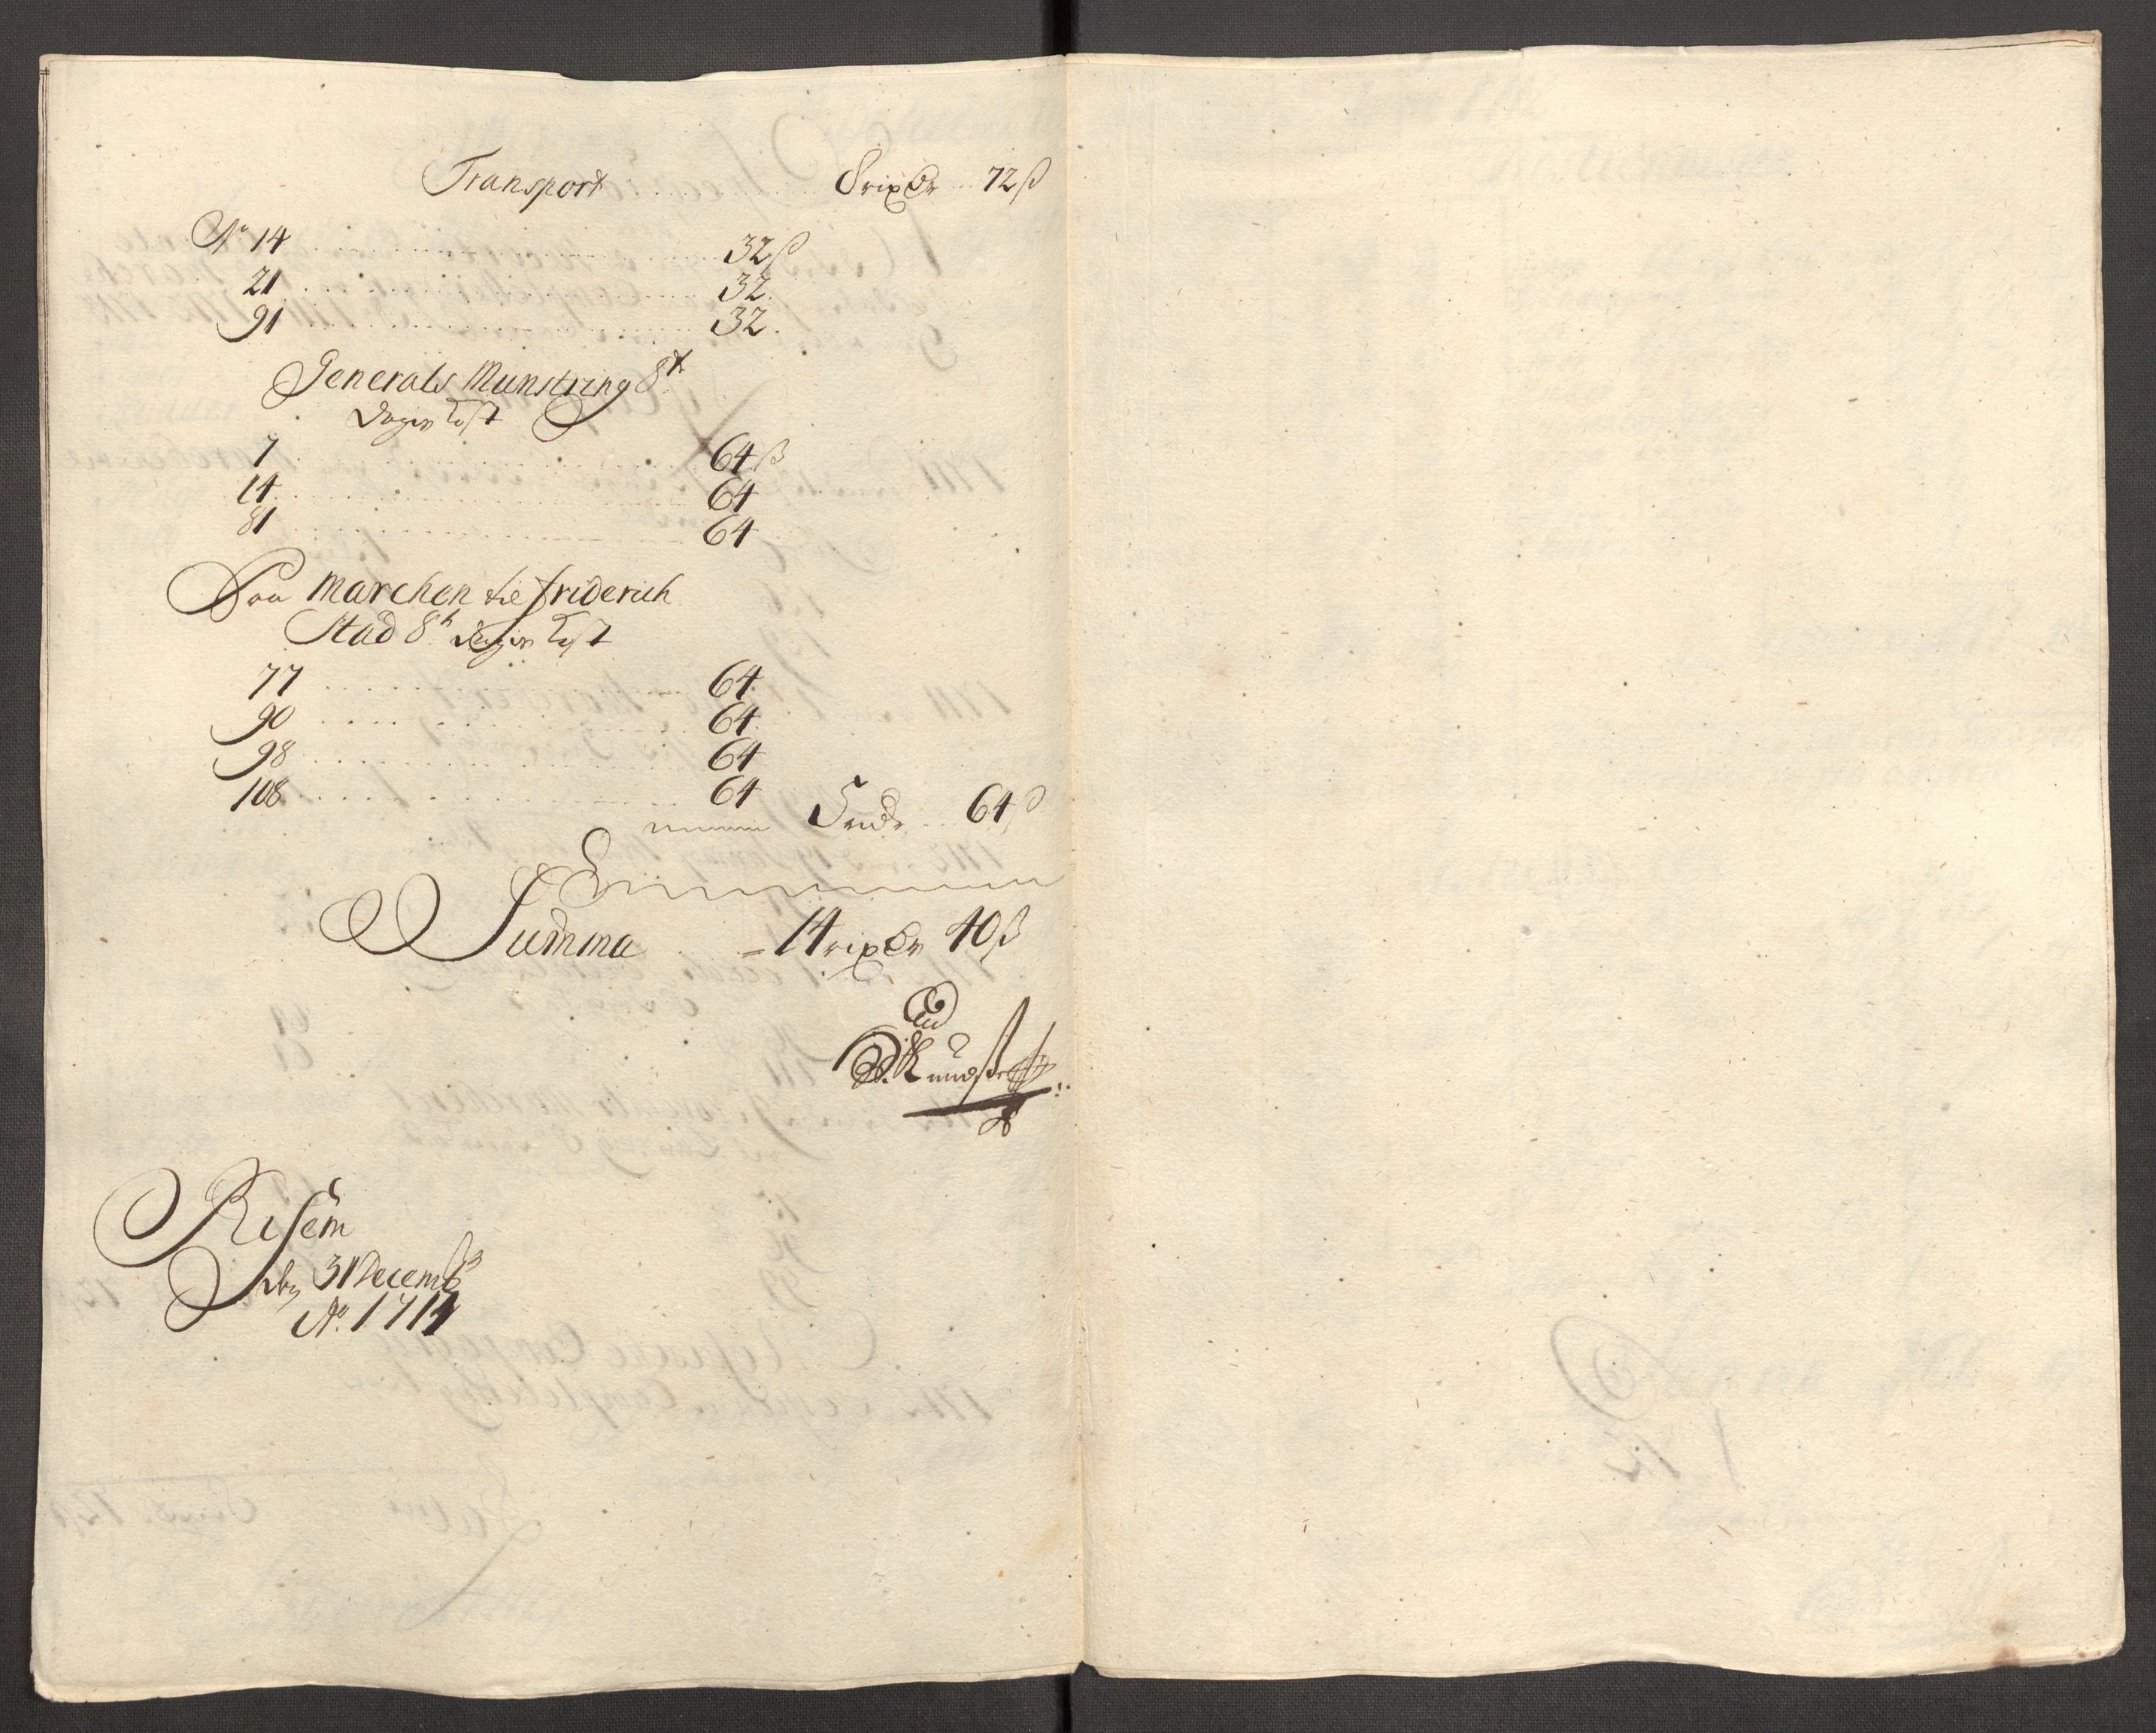 Transport ........ 8 rixdr .. 72 ß
No 14 ........ 32 ß
21 ........ 32
91 ........ 32.
Generals Munstring 8te
Dages Kost
7 ........ 64 ß
14 ........ 64
81 ........ 64
Paa Marchen til Friderich
Stad 8te Dages Kost
77 ........ 64.
90 ........ 64.
98 ........ 64
108 ........ 64
5 rdr .. 64 ß
Summa = 14 rixdr 40 ß
Risem
den 31 Decembr
Ao. 1714